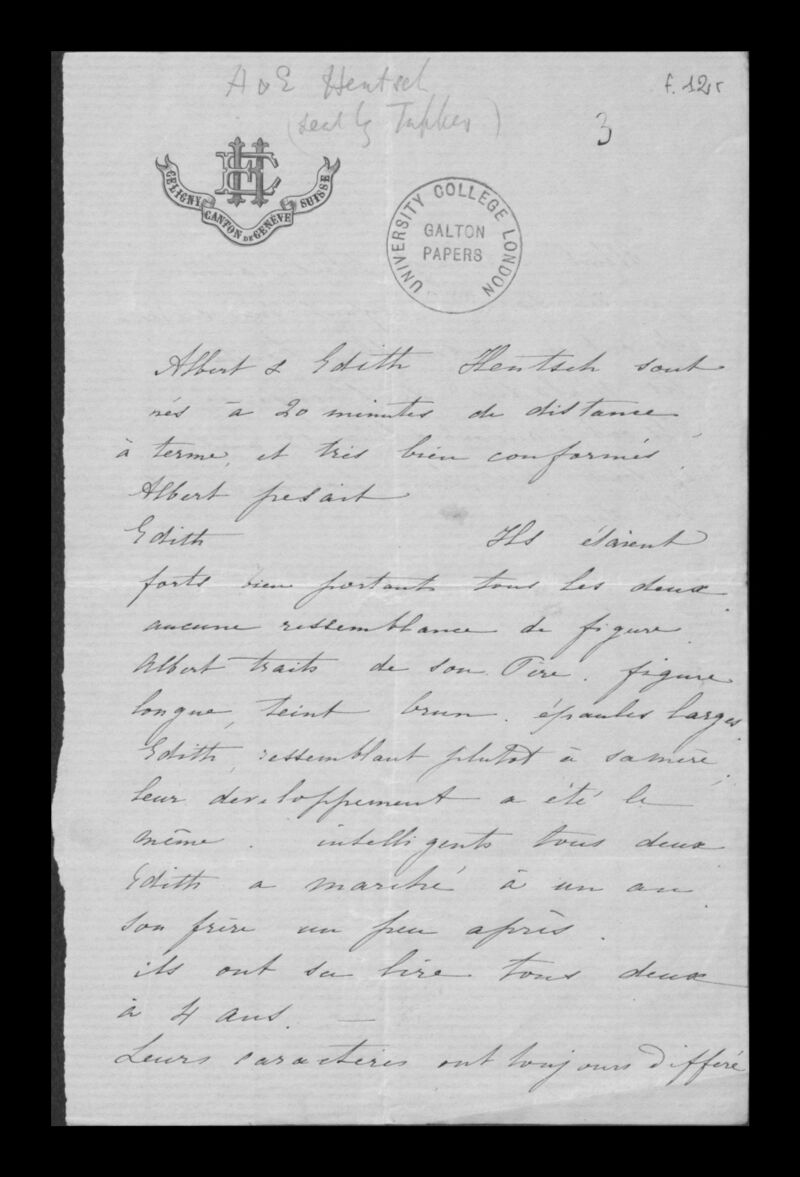 A & E Hentsch
f. 12r
3
HC
CELIGNY
CANTON DE GENÈVE
SUISSE
UNIVERSITY COLLEGE LONDON
GALTON
PAPERS
Albert & Edith Hentsch sont
nés à 20 minutes de distance
à terme, et très bien conformés.
Albert pesait
Edith Ils étaient
forts bien portants tous les deux
aucune ressemblance de figure.
Albert traits de son Père. figure
longue, teint brun. épaules larges.
Edith, ressemblant plutot à sa mère,
leur developpement a été le
même. intelligents tous deux
Edith a marché à un an.
son frère un peu après.
ils ont su lire tous deux
à 4 ans. —
Leurs caractères ont toujours différé